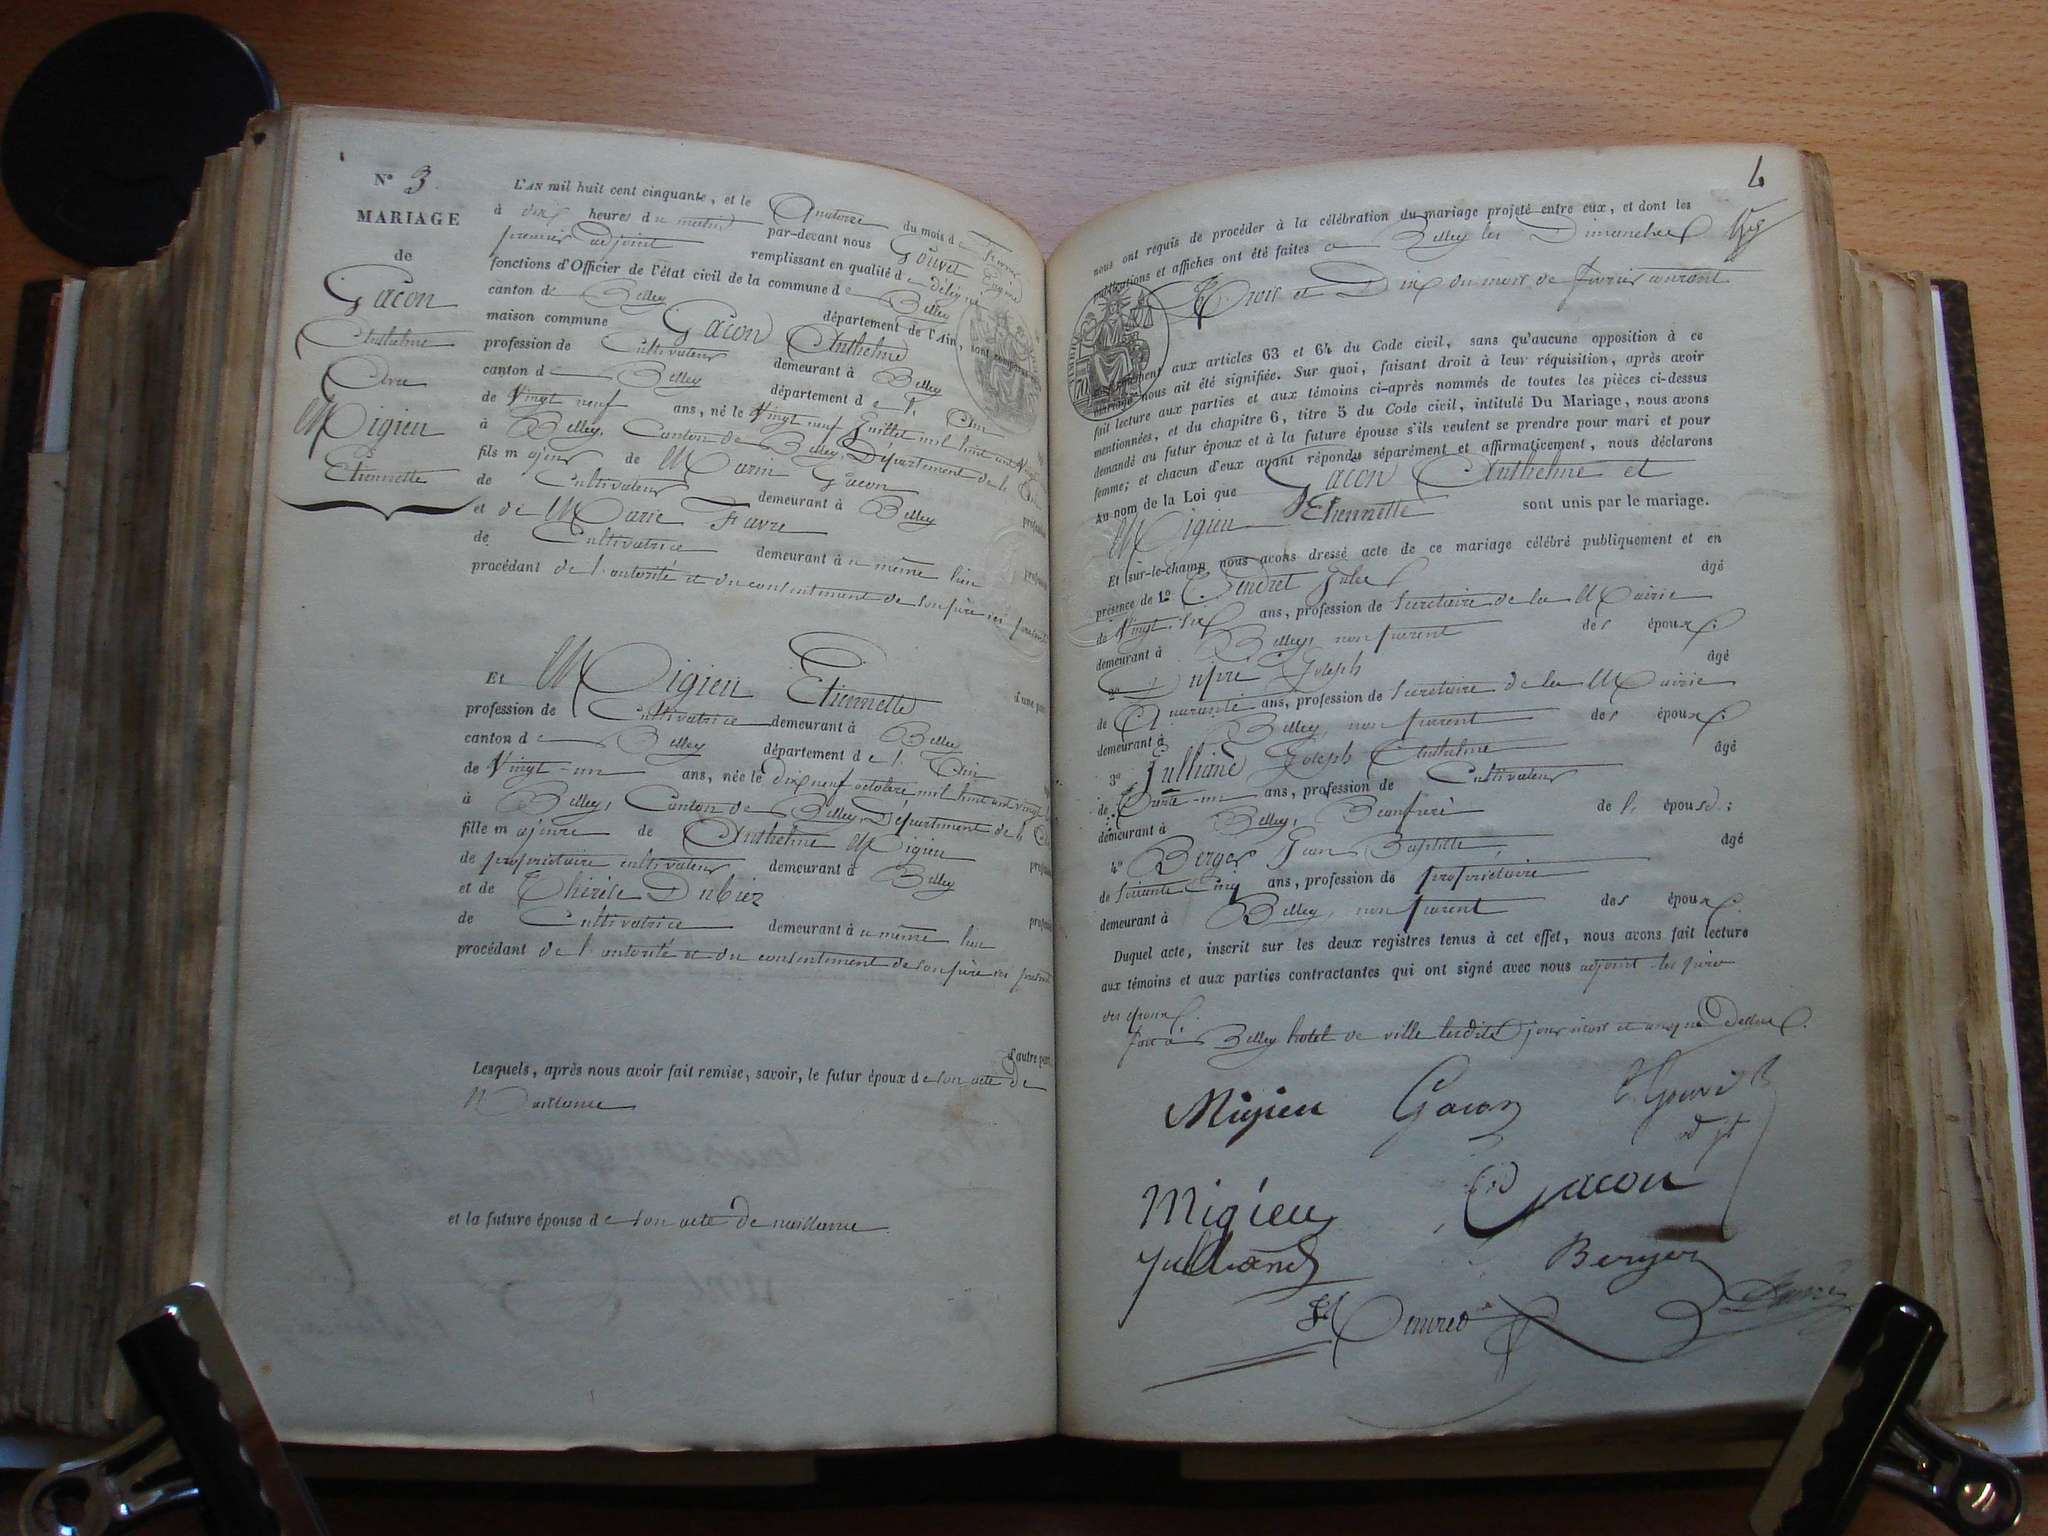 N° 3.
MARIAGE
de
Gacon
Anthelme
Avec
Migieu
Etiennette
L'AN mil huit cent cinquante, et le Quatorze du mois de février
à dix heures du matin par-devant nous Gouvet Eugène
premier adjoint remplissant en qualité de délégué
fonctions d'Officier de l'état civil de la commune de Belley
canton de Belley département de l'Ain, sont comparus
maison commune Gacon Anthelme
profession de Cultivateur demeurant à Belley
canton de Belley département de l'Ain
de Vingt neuf ans, né le Vingt neuf Juillet mil huit cent vingt
à Belley, Canton de Belley, Département de l'Ain
fils majeur de Marin Gacon
de Cultivateur demeurant à Belley
et de Marie Favre
de Cultivatrice demeurant à u même lieu
procédant de l'autorité et du consentement de son père ici présent
d'une part
Et Migieu Etiennette
profession de Cultivatrice demeurant à Belley
canton de Belley département de l'Ain
de Vingt-un ans, née le dix neuf octobre mil huit cent vingt
à Belley, Canton de Belley, Département de l'Ain
fille majeure de Anthelme Migieu
de propriétaire cultivateur demeurant à Belley
et de Thérèse Dubiez
de Cultivatrice demeurant à u même lieu
procédant de l'autorité et du consentement de son père ici présent
d'autre part
Lesquels, après nous avoir fait remise, savoir, le futur époux de son acte de
Naissance
et la future épouse de son acte de naissance
4
nous ont requis de procéder à la célébration du mariage projeté entre eux, et dont les
publications et affiches ont été faites à Belley les Dimanches
Trois et Dix du mois de février courant
conformément aux articles 63 et 64 du Code civil, sans qu'aucune opposition à ce
mariage nous ait été signifiée. Sur quoi, faisant droit à leur réquisition, après avoir
fait lecture aux parties et aux témoins ci-après nommés de toutes les pièces ci-dessus
mentionnées, et du chapitre 6, titre 5 du Code civil, intitulé Du Mariage, nous avons
demandé au futur époux et à la future épouse s'ils veulent se prendre pour mari et pour
femme; et chacun d'eux ayant répondu séparément et affirmativement, nous déclarons
Au nom de la Loi que Gacon Anthelme et
Migieu Etiennette sont unis par le mariage.
Et sur-le-champ nous avons dressé acte de ce mariage célébré publiquement et en
présence de 1° Tendret Jules âgé
de Vingt-six ans, profession de Secrétaire de la Mairie
demeurant à Belley, non parent des époux;
2° Dupré Joseph âgé
de Quarante ans, profession de Secrétaire de la Mairie
demeurant à Belley, non parent des époux;
3° Julliand Joseph Anthelme âgé
de Trente-un ans, profession de Cultivateur
demeurant à Belley, Beaufrère de l'épouse;
4° Berger Jean Baptiste âgé
de soixante Cinq ans, profession de propriétaire
demeurant à Belley, non parent des époux.
Duquel acte, inscrit sur les deux registres tenus à cet effet, nous avons fait lecture
aux témoins et aux parties contractantes qui ont signé avec nous adjoint les pères
des époux.
fait à Belley hotel de ville lesdits jour mois et an que Dessus.
Migieu Gacon E. Gouvet
adjt
Migieu Gacon
Julliand Berger
Tendret Dupré